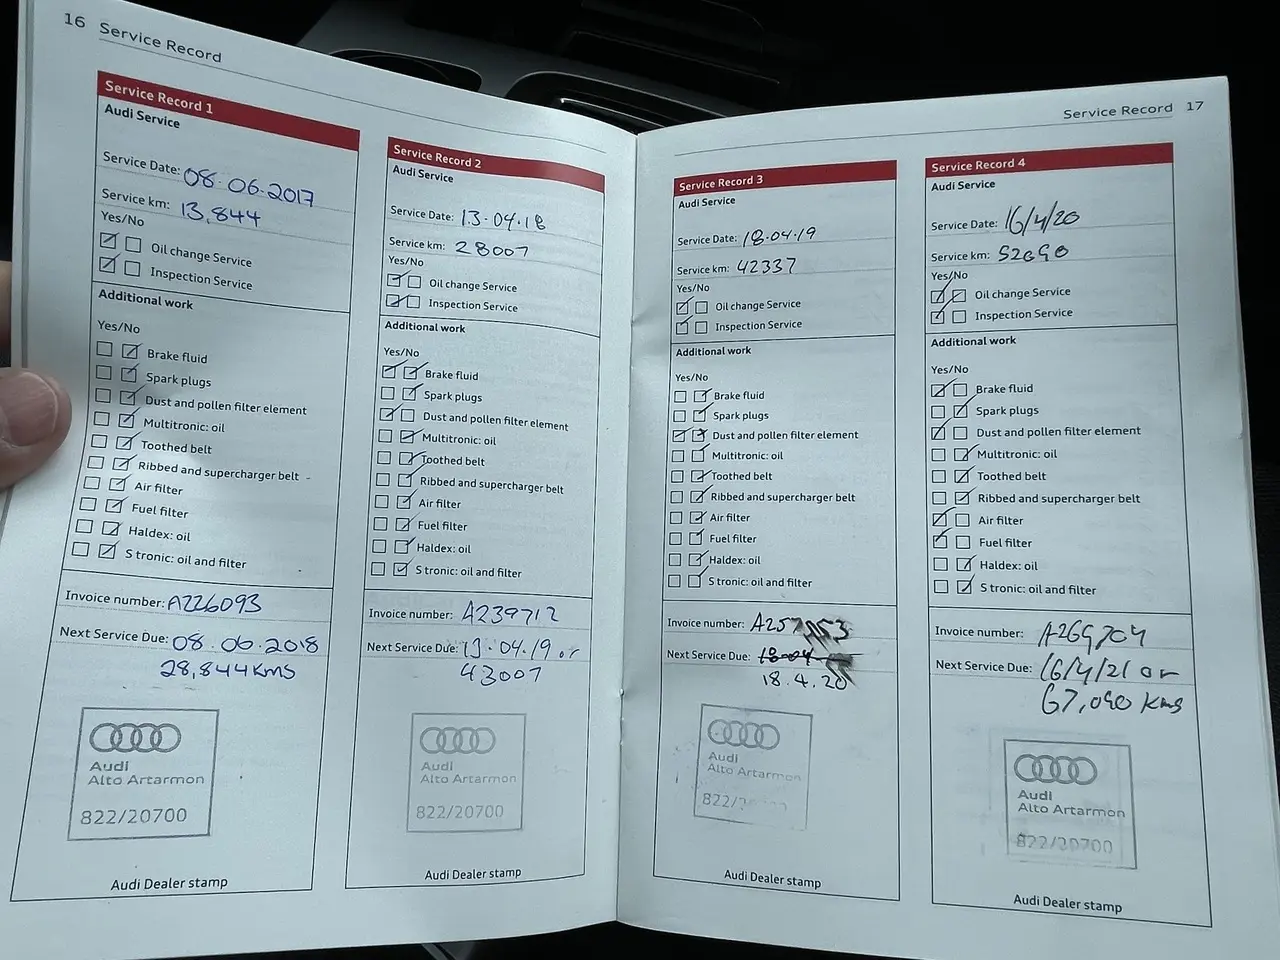 16 Service Record
Service Record 1
Audi Service
Service Date: 08.06.2017
Service km: 13,844
Yes/No
Oil change Service
Inspection Service
Additional work
Yes/No
Brake fluid
Spark plugs
Dust and pollen filter element
Multitronic: oil
Toothed belt
Ribbed and supercharger belt
Air filter
Fuel filter
Haldex: oil
S tronic: oil and filter
Invoice number: A226093
Next Service Due: 08.06.2018
28,844 kms
Audi
Alto Artarmon
822/20700
Audi Dealer stamp
Service Record 2
Audi Service
Service Date: 13.04.18
Service km: 28007
Yes/No
Oil change Service
Inspection Service
Additional work
Yes/No
Brake fluid
Spark plugs
Dust and pollen filter element
Multitronic: oil
Toothed belt
Ribbed and supercharger belt
Air filter
Fuel filter
Haldex: oil
S tronic: oil and filter
Invoice number: A239712
Next Service Due: 13.04.19 or
43007
Audi
Alto Artarmon
822/20700
Audi Dealer stamp
Service Record 17
Service Record 3
Audi Service
Service Date: 18.04.19
Service km: 42337
Yes/No
Oil change Service
Inspection Service
Additional work
Yes/No
Brake fluid
Spark plugs
Dust and pollen filter element
Multitronic: oil
Toothed belt
Ribbed and supercharger belt
Air filter
Fuel filter
Haldex: oil
S tronic: oil and filter
Invoice number:
Next Service Due: 18-04
18.4.20
Audi
Alto Artarmon
Audi Dealer stamp
Service Record 4
Audi Service
Service Date: 16/4/20
Service km: 52090
Yes/No
Oil change Service
Inspection Service
Additional work
Yes/No
Brake fluid
Spark plugs
Dust and pollen filter element
Multitronic: oil
Toothed belt
Ribbed and supercharger belt
Air filter
Fuel filter
Haldex: oil
S tronic: oil and filter
Invoice number: A269704
Next Service Due: 16/4/21 or
67,090 kms
Audi
Alto Artarmon
822/20700
Audi Dealer stamp